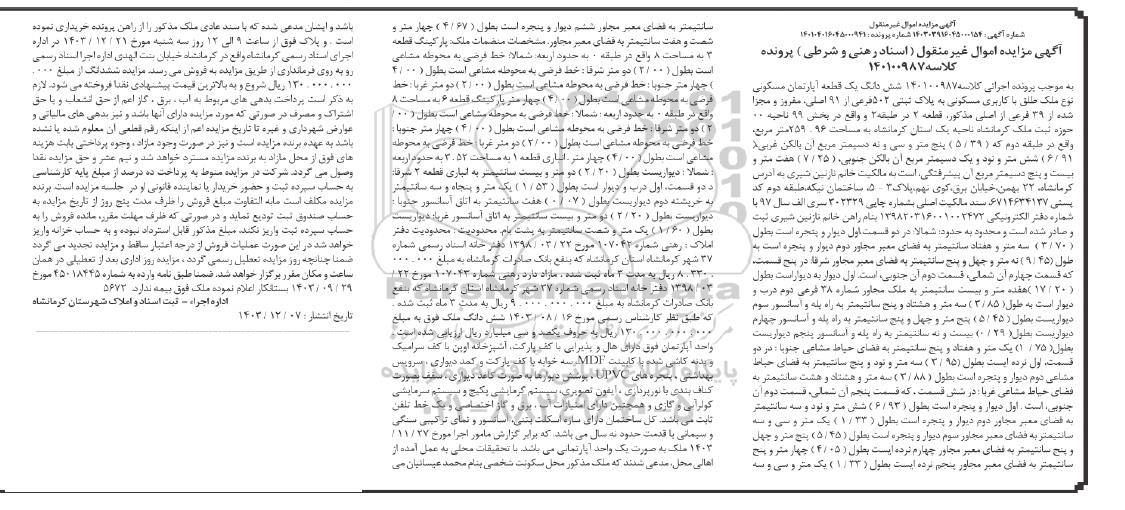 آگهی مزایده اموال غیر منقول
شماره آگهی: ۱۴۰۳۰۳۹۱۶۰۴۵۰۰۰۱۵۴ شماره پرونده: ۱۴۰۱۰۴۰۱۶۰۴۵۰۰۰۹۴۱
آگهی مزایده اموال غیر منقول ( اسناد رهنی و شرطی ) پرونده
کلاسه۱۴۰۱۰۰۹۸۷
به موجب پرونده اجرائی کلاسه۱۴۰۱۰۰۹۸۷ شش دانگ یک قطعه آپارتمان مسکونی
نوع ملک طلق با کاربری مسکونی به پلاک ثبتی ۵۰۲فرعی از ۹۱ اصلی، مفروز و مجزا
شده از ۳۹ فرعی از اصلی مذکور، قطعه ۲ در طبقه۲ و واقع در بخش ۹۹ ناحیه ۰۰
حوزه ثبت ملک کرمانشاه ناحیه یک استان کرمانشاه به مساحت ۹۶ . ۲۵۹متر مربع،
واقع در طبقه دوم که ( ۳۹ / ۵ ) پنج متر و سی و نه دسیمتر مربع آن بالکن غربی،(
۹۱ / ۶ ) شش متر و نود و یک دسیمتر مربع آن بالکن جنوبی، ( ۲۵ / ۷ ) هفت متر و
بیست و پنج دسیمتر مربع آن پیشرفتگی، است به مالکیت خانم نازنین شیری به آدرس
کرمانشاه، ۲۲ بهمن،خیابان برق،کوی نهم،پلاک۳ - ۵، ساختمان نیکه،طبقه دوم کد
پستی ۶۷۱۴۶۳۴۱۳۷، سند مالکیت اصلی بشماره چاپی ۳۰۲۳۲۹ سری الف سال ۹۷ با
شماره دفتر الکترونیکی ۱۳۹۸۲۰۳۱۶۰۰۱۰۰۲۴۷۲ بنام راهن خانم نازنین شیری ثبت
و صادر شده است و محدود به حدود: شمالا: در دو قسمت،اول دیوار و پنجره است بطول
( ۷۰ / ۳ ) سه متر و هفتاد سانتیمتر به فضای معبر مجاور دوم دیوار و پنجره است به
طول (۴۵ / ۹ ) نه متر و چهل و پنج سانتیمتر به فضای معبر مجاور شرقا: در پنج قسمت،
که قسمت چهارم آن شمالی، قسمت دوم آن جنوبی، است. اول دیوار به دیواراست بطول
( ۲۰ / ۱۷ )هفده متر و بیست سانتیمتر به ملک مجاور شماره ۳۸ فرعی دوم درب و
دیوار است به طول ( ۸۵ / ۳ ) سه متر و هشتاد و پنج سانتیمتر به راه پله و آسانسور سوم
دیواریست بطول ( ۴۵ / ۵ ) پنج متر و چهل و پنج سانتیمتر به راه پله و آسانسور چهارم
دیواریست بطول( ۲۹ / ۰ ) بیست و نه سانتیمتر به راه پله و آسانسور پنجم دیواریست
بطول( ۷۵ / ۱ ) یک متر و هفتاد و پنج سانتیمتر به فضای حیاط مشاعی جنوبا : در دو
قسمت، اول نرده ایست بطول ( ۹۵ / ۳ ) سه متر و نود و پنج سانتیمتر به فضای حیاط
مشاعی دوم دیوار و پنجره است بطول ( ۸۸ / ۳ ) سه متر و هشتاد و هشت سانتیمتر به
فضای حیاط مشاعی غربا : در شش قسمت ، که قسمت پنجم آن شمالی، قسمت دوم آن
جنوبی، است . اول دیوار و پنجره است بطول ( ۹۳ / ۶ ) شش متر و نود و سه سانتیمتر
به فضای معبر مجاور دوم دیوار و پنجره است بطول ( ۳۳ / ۱ ) یک متر و سی و سه
سانتیمتر به فضای معبر مجاور سوم دیوار و پنجره است بطول ( ۴۵ / ۵ ) پنج متر و چهل
و پنج سانتیمتر به فضای معبر مجاور چهارم نرده ایست بطول ( ۰۵ / ۴ ) چهار متر و پنج
سانتیمتر به فضای معبر مجاور پنجم نرده ایست بطول ( ۳۳ / ۱ ) یک متر و سی و سه
سانتیمتر به فضای معبر مجاور ششم دیوار و پنجره است بطول ( ۶۷ / ۴ ) چهار متر و
شصت و هفت سانتیمتر به فضای معبر مجاور. مشخصات منضمات ملک: پارکینگ قطعه
۳ به مساحت ۸ واقع در طبقه ۰ به حدود اربعه: شمالا: خط فرضی به محوطه مشاعی
است بطول ( ۰۰ / ۲ ) دو متر شرقا : خط فرضی به محوطه مشاعی است بطول ( ۰۰ / ۴
) چهار متر جنوبا : خط فرضی به محوطه مشاعی است بطول ( ۰۰ / ۲ ) دو متر غربا : خط
فرضی به محوطه مشاعی است بطول ( ۰۰ / ۴ ) چهار متر پارکینگ قطعه ۶ به مساحت ۸
واقع در طبقه ۰ به حدود اربعه : شمالا : خط فرضی به محوطه مشاعی است بطول ( ۰۰ /
۲ ) دو متر شرقا : خط فرضی به محوطه مشاعی است بطول ( ۰۰ / ۴ ) چهار متر جنوبا :
خط فرضی به محوطه مشاعی است بطول ( ۰۰ / ۲ ) دو متر غربا : خط فرضی به محوطه
مشاعی است بطول ( ۰۰ / ۴ ) چهار متر . انباری قطعه ۱ به مساحت ۵۲ . ۳ به حدود اربعه
: شمالا : دیواریست بطول ( ۲۰ / ۲ ) دو متر و بیست سانتیمتر به انباری قطعه ۲ شرقا:
د دو قسمت، اول درب و دیوار است بطول ( ۵۳ / ۱ ) یک متر و پنجاه و سه سانتیمتر
به خرپشته دوم دیواریست بطول ( ۰۷ / ۰ ) هفت سانتیمتر به اتاق آسانسور جنوبا :
دیواریست بطول ( ۲۰ / ۲ ) دو متر و بیست سانتیمتر به اتاق آسانسور غربا: دیواریست
بطول ( ۶۰ / ۱ ) یک متر و شصت سانتیمتر به پشت بام. محدودیت : محدودیت دفتر
املاک : رهنی شماره ۱۰۷۰۴۲ مورخ ۲۲ / ۰۳ / ۱۳۹۸ دفتر خانه اسناد رسمی شماره
۳۷ شهر کرمانشاه استان کرمانشاه که بنفع بانک صادرات کرمانشاه به مبلغ ۰۰۰ . ۰۰۰
. ۳۳۰ . ۸ ریال به مدت ۳ ماه ثبت شده . مازاد دارد رهنی شماره ۱۰۷۰۴۳ مورخ ۲۲ /
۰۳ / ۱۳۹۸ دفتر خانه اسناد رسمی شماره ۳۷ شهر کرمانشاه استان کرمانشاه که بنفع
بانک صادرات کرمانشاه به مبلغ ۰۰۰ . ۰۰۰ . ۰۰۰ . ۹ ریال به مدت ۳ ماه ثبت شده .
که طبق نظر کارشناس رسمی مورخ ۱۶ / ۰۸ / ۱۴۰۳ شش دانگ ملک فوق به مبلغ
۰۰۰ . ۰۰۰ . ۰۰۰ . ۱۳۰ ریال به حروف یکصد و سی میلیارد ریال ارزیابی شده است .
واحد آپارتمان فوق دارای هال و پذیرایی با کف پارکت، آشپزخانه اوپن با کف سرامیک
و بدنه کاشی شده با کابینت MDF،سه خوابه با کف پارکت و کمد دیواری ، سرویس
بهداشتی ، پنجره های UPVC ، پوشش دیوارها به صورت کاغذ دیواری ، سقف بصورت
کناف بندی با نورپردازی ، آیفون تصویری، سیستم گرمایشی پکیج و سیستم سرمایشی
کولرآبی و گازی و همچنین دارای امتیازات آب ، برق و گاز اختصاصی و یک خط تلفن
ثابت می باشد. کل ساختمان دارای سازه اسکلت بتنی، آسانسور و نمای ترکیبی سنگی
و سیمانی با قدمت حدود نه سال می باشد. که برابر گزارش مامور اجرا مورخ ۲۷ / ۱۱ /
۱۴۰۳ ملک به صورت یک واحد آپارتمانی می باشد. با تحقیقات محلی به عمل آمده از
اهالی محل، مدعی شدند که ملک مذکور محل سکونت شخصی بنام محمد عیسانیان می
باشد و ایشان مدعی شده که با سند عادی ملک مذکور را از راهن پرونده خریداری نموده
است . و پلاک فوق از ساعت ۹ الی ۱۲ روز سه شنبه مورخ ۲۱ / ۱۲ / ۱۴۰۳ در اداره
اجرای اسناد رسمی کرمانشاه واقع در کرمانشاه خیابان بنت الهدی اداره اجرا اسناد رسمی
رو به روی فرمانداری از طریق مزایده به فروش می رسد. مزایده ششدانگ از مبلغ ۰۰۰ .
۰۰۰ . ۰۰۰ . ۱۳۰ ریال شروع و به بالاترین قیمت پیشنهادی نقدا فروخته می شود. لازم
به ذکر است پرداخت بدهی های مربوط به آب ، برق ، گاز اعم از حق انشعاب و یا حق
اشتراک و مصرف در صورتی که مورد مزایده دارای آنها باشد و نیز بدهی های مالیاتی و
عوارض شهرداری و غیره تا تاریخ مزایده اعم از اینکه رقم قطعی آن معلوم شده یا نشده
باشد به عهده برنده مزایده است و نیز در صورت وجود مازاد ، وجوه پرداختی بابت هزینه
های فوق از محل مازاد به برنده مزایده مسترد خواهد شد و نیم عشر و حق مزایده نقدا
وصول می گردد. شرکت در مزایده منوط به پرداخت ده درصد از مبلغ پایه کارشناسی
به حساب سپرده ثبت و حضور خریدار یا نماینده قانونی او در جلسه مزایده است. برنده
مزایده مکلف است مابه التفاوت مبلغ فروش را ظرف مدت پنج روز از تاریخ مزایده به
حساب صندوق ثبت تودیع نماید و در صورتی که ظرف مهلت مقرر، مانده فروش را به
حساب سپرده ثبت واریز نکند، مبلغ مذکور قابل استرداد نبوده و به حساب خزانه واریز
خواهد شد در این صورت عملیات فروش از درجه اعتبار ساقط و مزایده تجدید می گردد
ضمنا چنانچه روز مزایده تعطیل رسمی گردد ، مزایده روز اداری بعد از تعطیلی در همان
ساعت و مکان مقرر برگزار خواهد شد. ضمنا طبق نامه وارده به شماره ۴۵۰۱۸۴۴۵ مورخ
۲۹ / ۰۹ / ۱۴۰۳ بستانکار اعلام نموده ملک فوق بیمه ندارد. ۵۶۷۲
اداره اجراء - ثبت اسناد و املاک شهرستان کرمانشاه
تاریخ انتشار : ۰۷ / ۱۲ / ۱۴۰۳